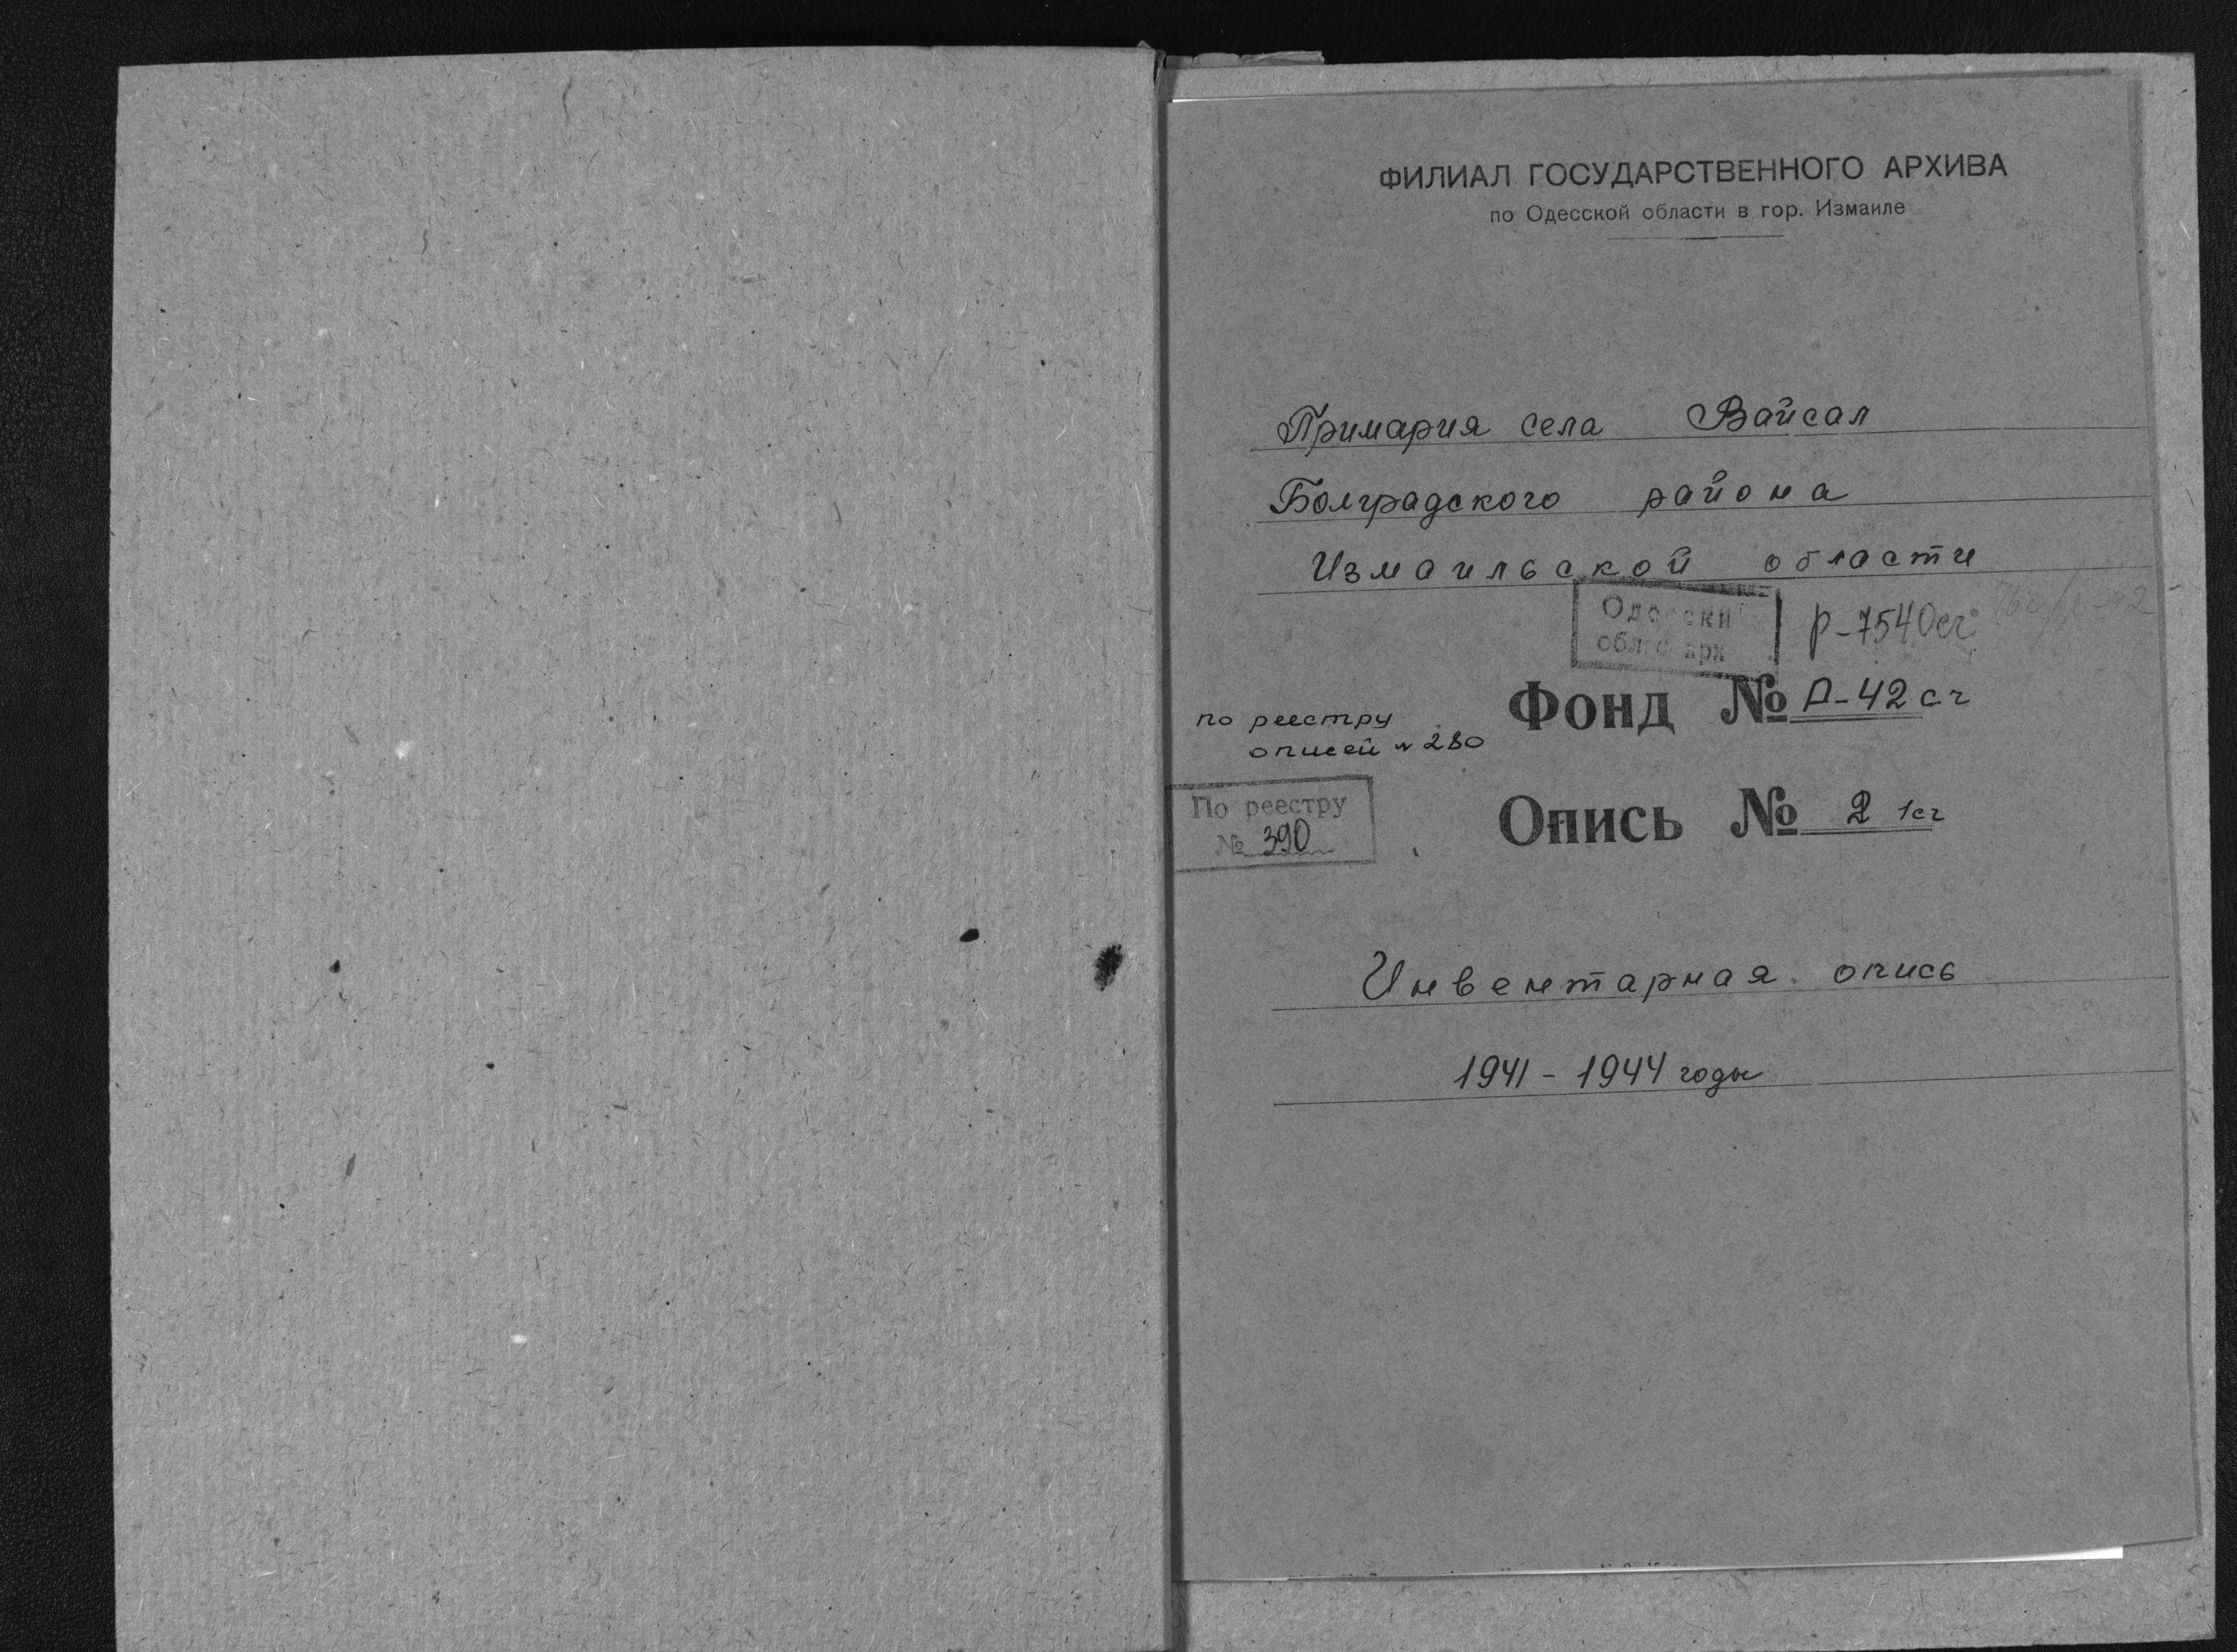 ФИЛИАЛ ГОСУДАРСТВЕННОГО АРХИВА
по Одесской области в гор. Измаиле
Примария села Вайсал
Болградского района
Измаильской области
р-7540сч
Фонд № А-42сч
по реестру
описей № 280
Опись № 2 1сч
По реестру
№ 390
Инвентарная опись
1941 - 1944 годы